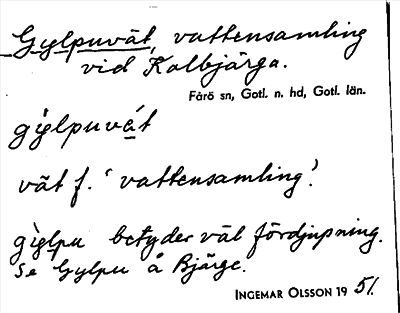 Gylpuvät, vattensamling
vid Kalbjärga.
Fårö sn, Gotl. n. hd, Gotl. län.
gi̯lpuvät
vät f. 'vattensamling'.
gi̯lpu betyder väl fördjupning.
Se Gylpu å Bjärge.
INGEMAR OLSSON 19 51.